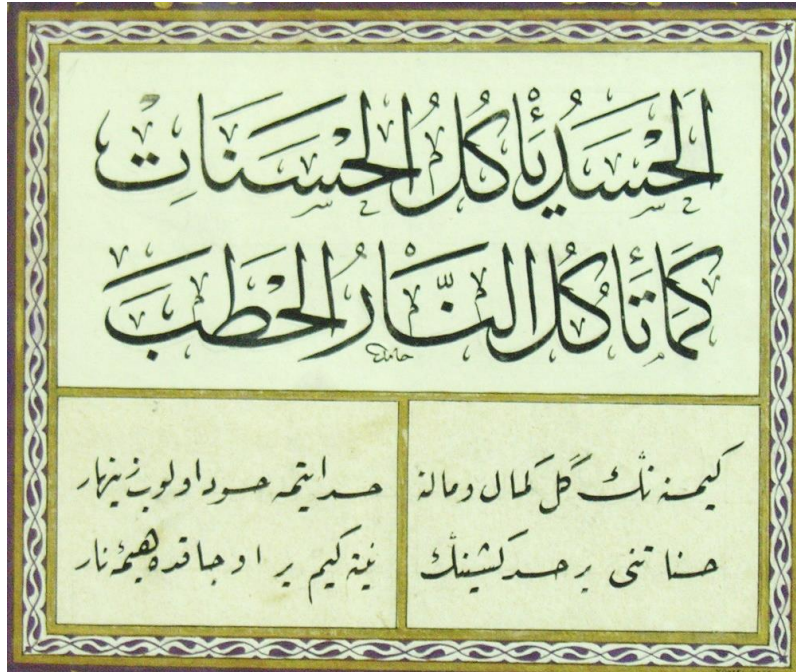 اَلْحَسَدُ يَأْكُلُ الْحَسَنَاتِ
كَمَا تَأْكُلُ النَّارُ الْحَطَبَ
حامد
كيمسه نڭ كمال و مالنه
حسد ايتمه حسود اولوب زينهار
حسناتنى ير حسد كشينڭ
نيته كيم ير اوجاقده هيمهٔ نار